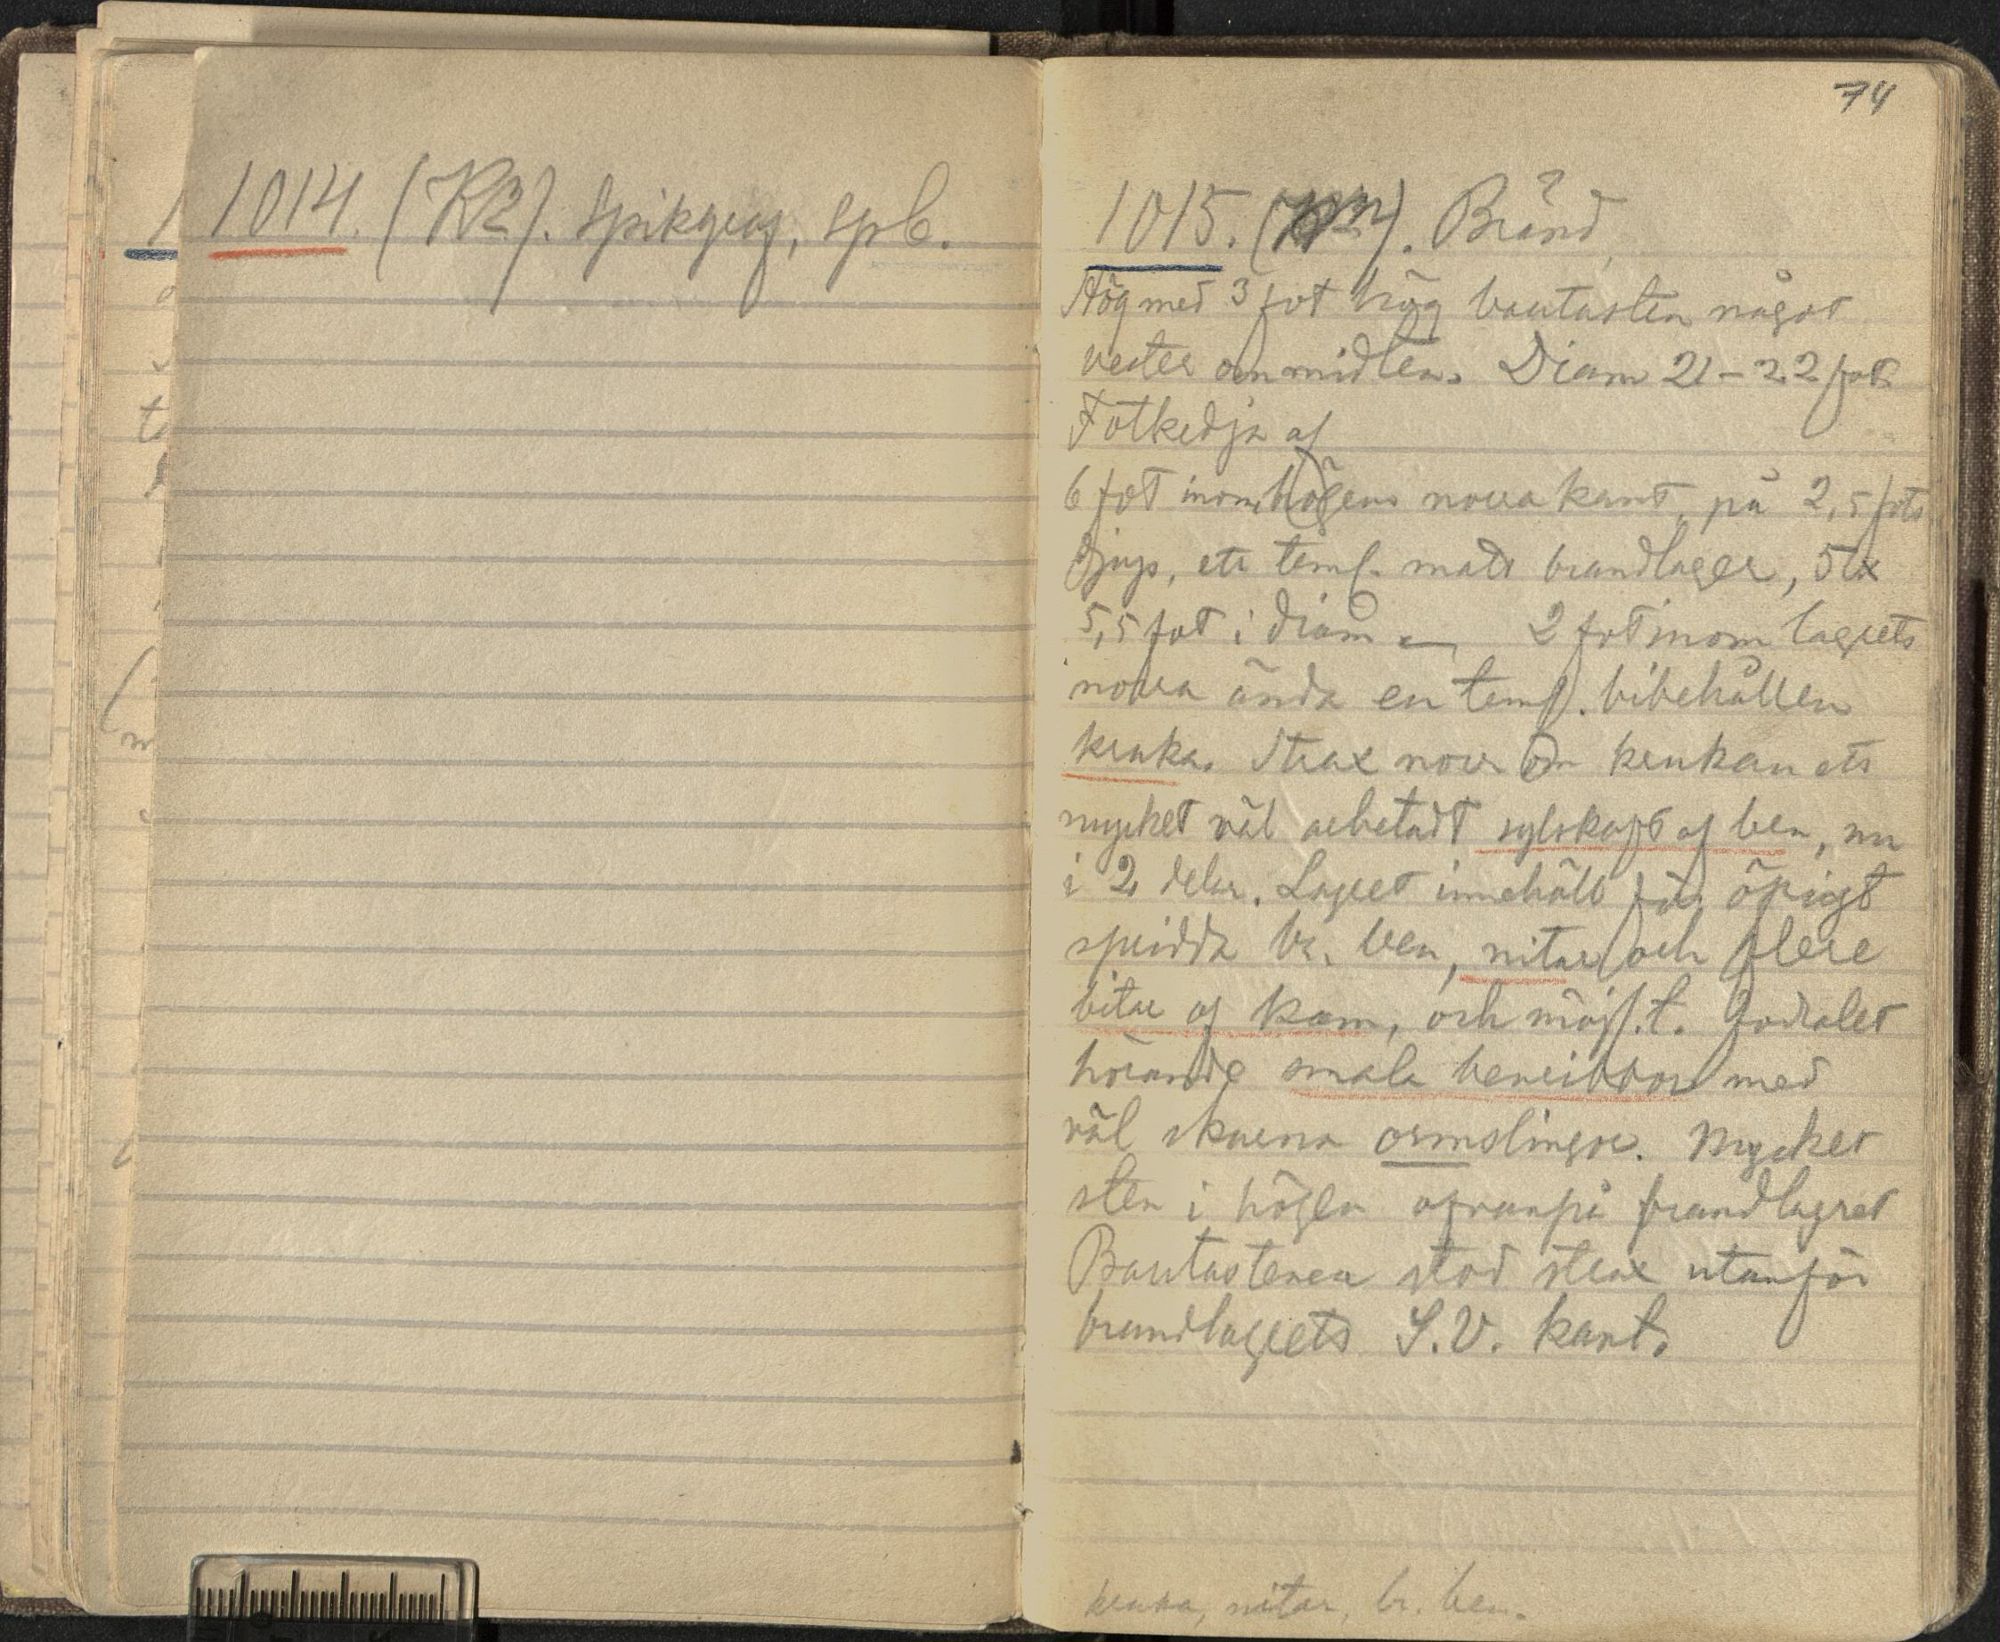 1014. (K2). Spikgraf, spb.
74
1015. Bränd
Hög med 3 fot hög bautasten något
vester om midten. Diam 21-22 fot
Fotkedja af
6 fot inom högens norra kant, på 2,5 fots
djup, ett teml. matt brandlager, 5 à
5,5 fot i diam. 2 fot inom lagrets
norra ända en teml. bibehållen
kruka. Strax norr om krukan ett
mycket väl arbetadt sylskaft af ben, nu
i 2 delar. Lagret innehöll för öfrigt
spridda br. ben, nitar och flere
bitar af kam, och möjl. t. fodralet
hörande smala benribbor med
väl skurna ormslingor. Mycket
sten i högen ofvanpå brandlagret
Bautastenen stod strax utanför
brandlagrets S.V. kant.
kruka, nitar, br. ben.